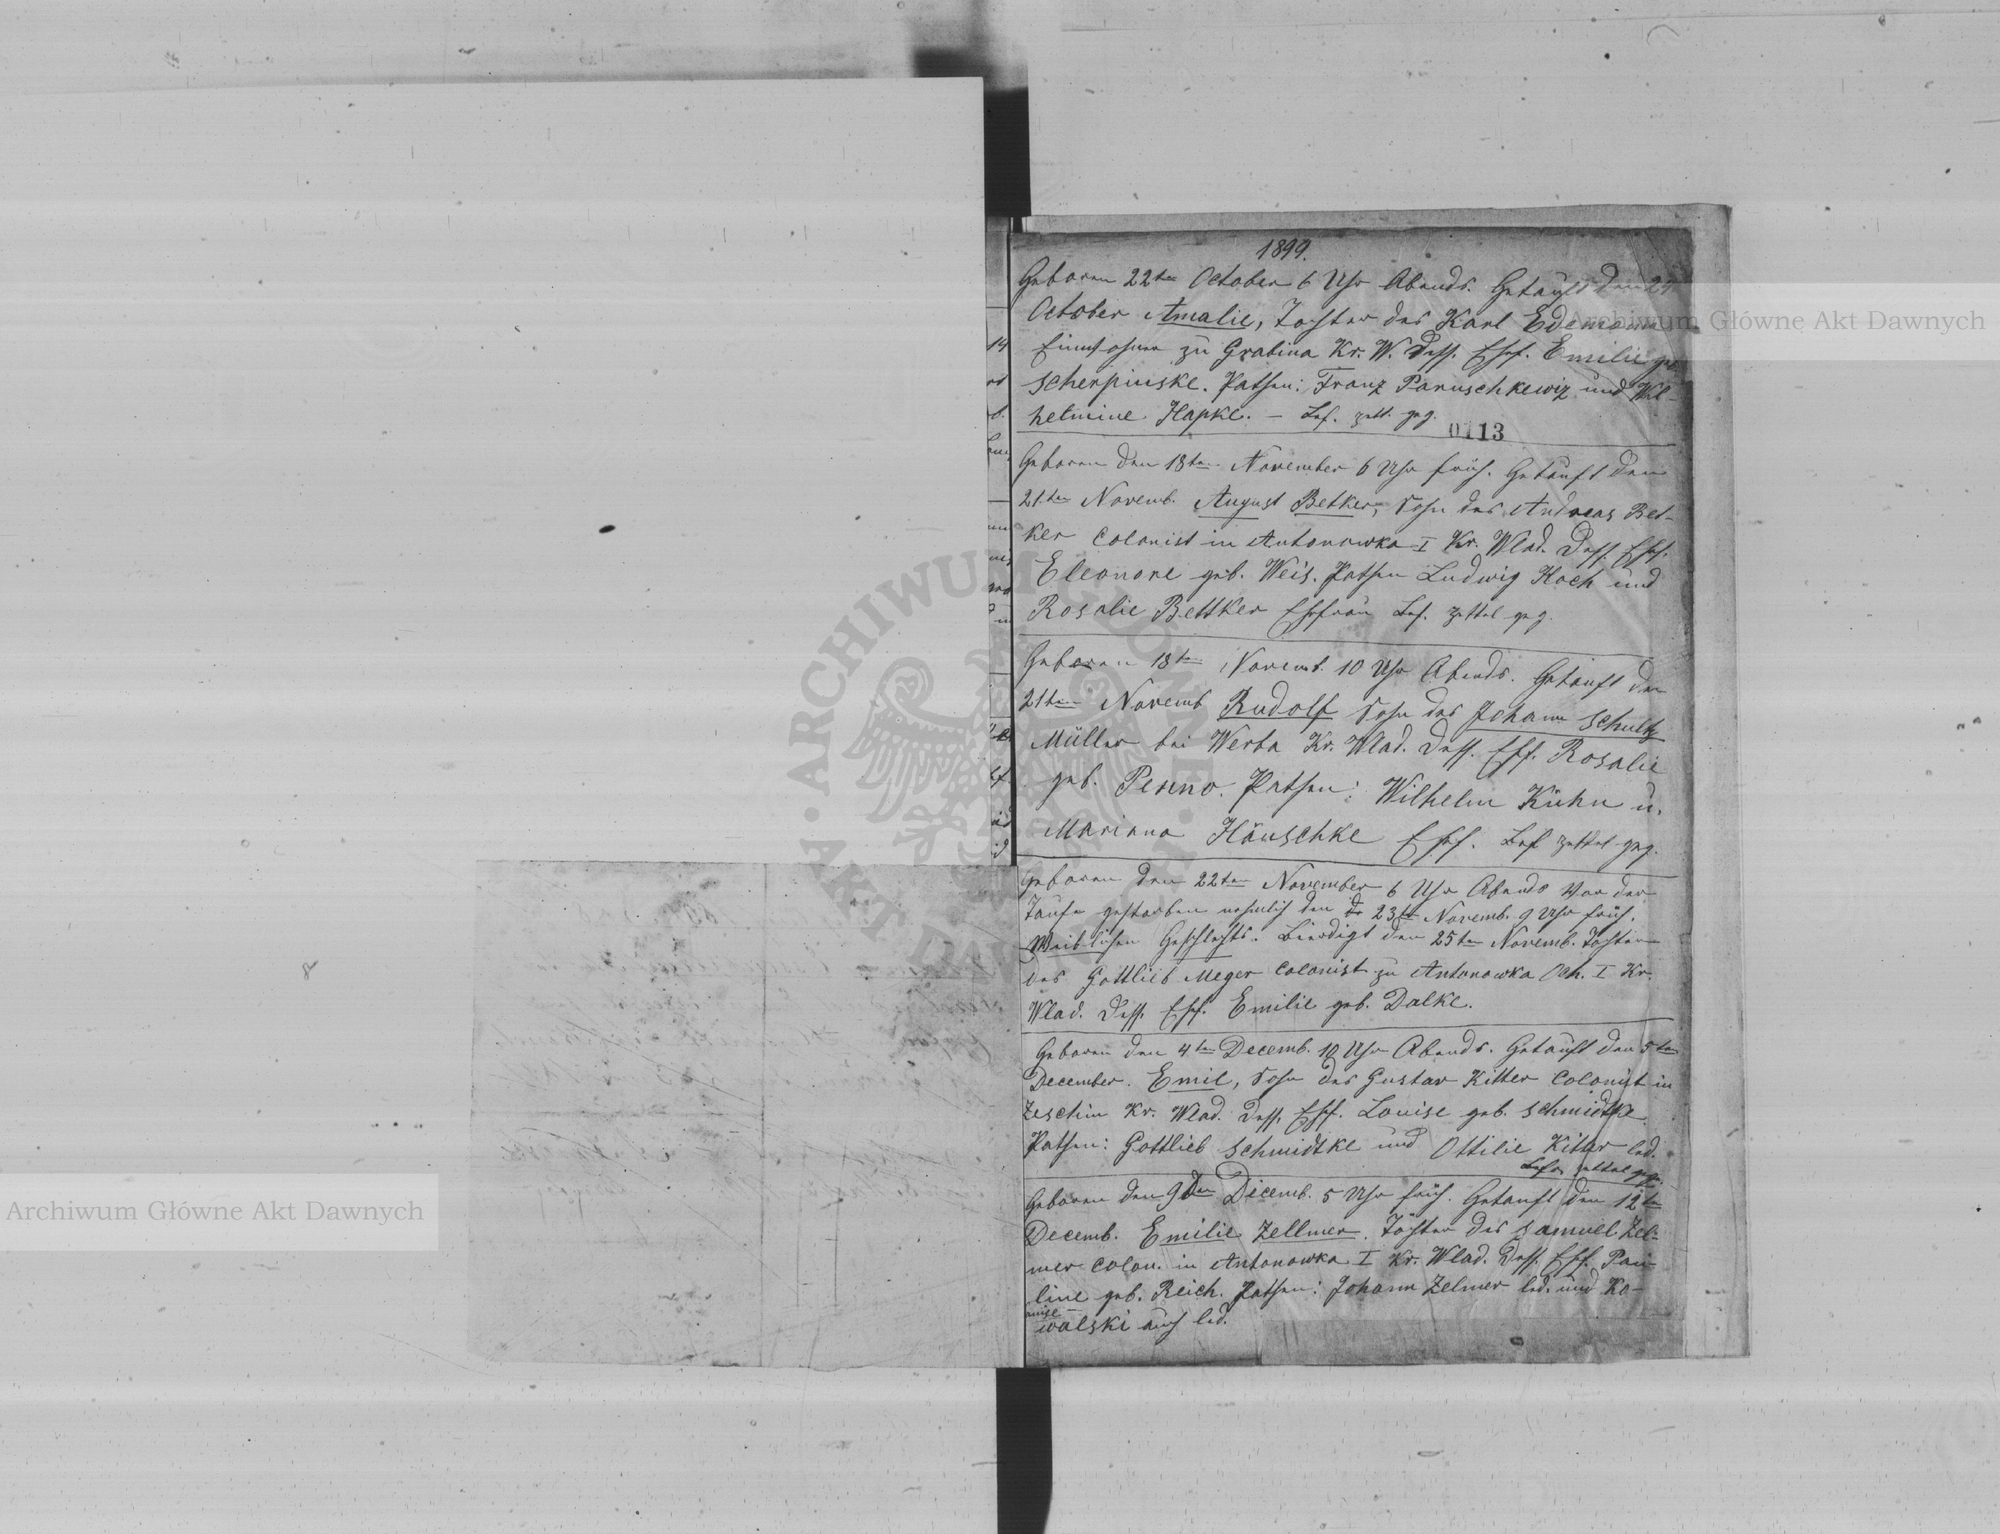 1899.
Geboren 22ten October 6 Uhr Abends. Getauft den 24
October Amalie, Tochter des Karl Edemann
Einwohner zu Grabina Kr. W. Dess. Ehef. Emilie geb
Scherpinske. Pathen: Franz Paruschkewiz und Wil-
helmine Hapke. – Leg. zett. geg.
0113
Geboren den 18ten November 6 Uhr früh. Getauft den
21ten Novemb. August Betker, Sohn des Andreas Bet-
ker Colonist in Antonowka I Kr. Wlad. Dess. Ehef.
Eleonore geb. Weis. Pathen Ludwig Koch und
Rosalie Bettker Ehefrau Leg. zettel geg.
Geboren 18ten Novemb. 10 Uhr Abends. Getauft den
21ten Novemb Rudolf Sohn des Johann Schultz
Müller bei Werba Kr. Wlad. Dess. Ehf. Rosalie
geb. Penno. Pathen: Wilhelm Kühn u.
Mariana Häuschke Ehef. Leg zettel geg.
Geboren den 22ten November 6 Uhr Abends Vor der
Taufe gestorben nehmlich den 23ten Novemb. 9 Uhr früh.
Weiblichen Geschlechts. Beerdigt den 25ten Novemb. Tochter
des Gottlieb Meger Colonist zu Antonowka Och. I Kr.
Wlad. Dess. Ehef. Emilie geb. Dalke.
Geboren den 4ten Decemb. 10 Uhr Abends. Getauft den 5ten
December. Emil, Sohn des Gustav Kitter Colonist in
Zeschin Kr. Wlad. Dess. Ehef. Louise geb. Schmidtke
Pathen: Gottlieb Schmidtke und Ottilie Kitter led.
zettel geg.
Geboren den 9ten Decemb. 5 Uhr früh. Getauft den 12ten
Decemb. Emilie Zellmer. Tochter des Samuel Zel-
mer Colon. in Antonowka I Kr. Wlad. Dess. Ehf. Pau-
line geb. Reich. Pathen: Johann Zelmer led. und Ko-
walski auch led.
Archiwum Główne Akt Dawnych
Archiwum Główne Akt Dawnych